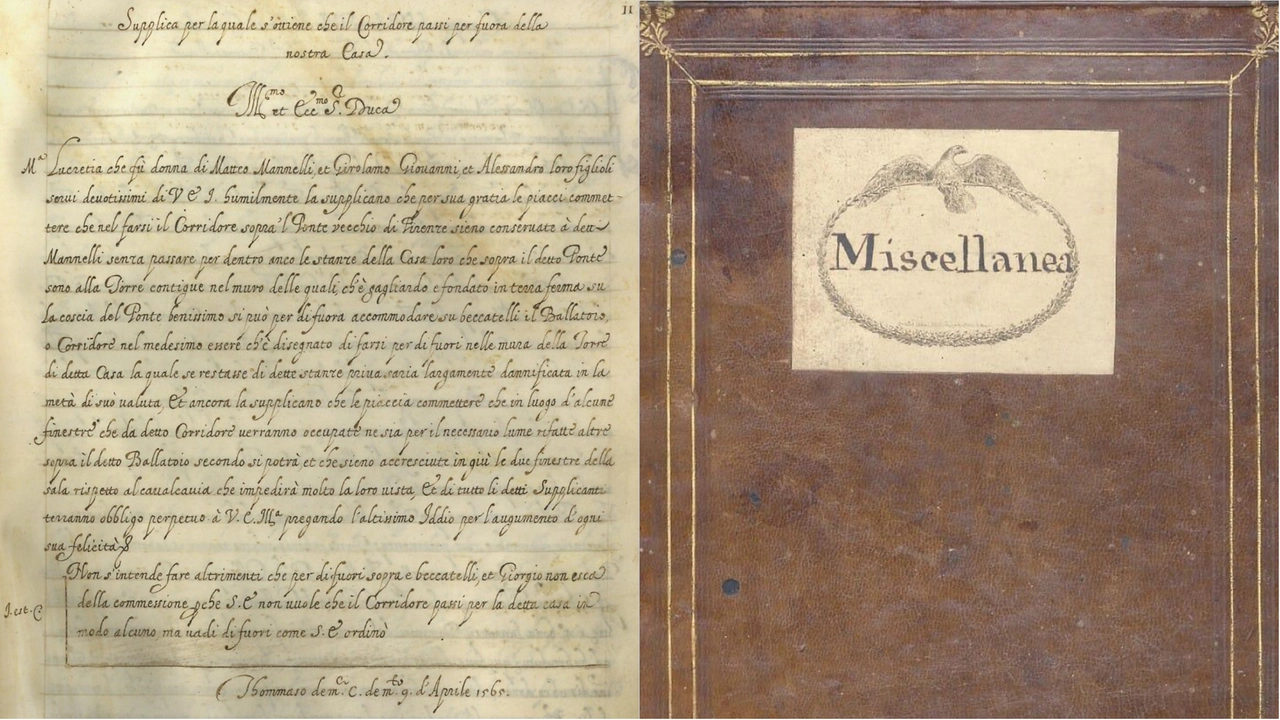 11
Supplica per la quale s'ottiene che il Corridore passi per fuora della
nostra Casa.
Ill.mo et Ecc.mo S. Duca
M.a Lucretia che fù donna di Matteo Mannelli, et Girolamo Giovanni, et Alessandro loro figlioli
servi devotissimi di V E I. humilmente la supplicano che per sua gratia le piacci commet-
tere che nel farsi il Corridore sopra'l Ponte vecchio di Firenze sieno conservate à detti
Mannelli senza passare per dentro anco le stanze della Casa loro che sopra il detto Ponte
sono alla Torre contigue nel muro delle quali, ch'è gagliardo e fondato in terra ferma su
la coscia del Ponte benissimo si può per di fuora accommodare su beccatelli il Ballatoio,
o Corridore nel medesimo essere ch'è disegnato di farsi per di fuori nelle mura della Torre
di detta Casa la quale se restasse di dette stanze priva saria largamente dannificata in la
metà di suo valuta, Et ancora la supplicano che le piaccia commettere che in luogo d'alcune
finestre che da detto Corridore verranno occupate ne sia per il necessario lume rifatte altre
sopra il detto Ballatoio secondo si potrà et che sieno accresciute in giù le due finestre della
sala rispetto al cavalcavia che impedirà molto la loro vista, Et di tutto li detti Supplicanti
terranno obbligo perpetuo à V. E. Ill.a pregando l'altissimo Iddio per l'augumento d'ogni
sua felicità
Non s'intende fare altrimenti che per di fuori sopra e beccatelli, et Giorgio non esca
della commessione pche S. E non vuole che il Corridore passi per la detta casa in
modo alcuno, ma vadi di fuori come S. E ordinò
Thommaso de m. C. de m.to 9. d'Aprile 1565.
Miscellanea